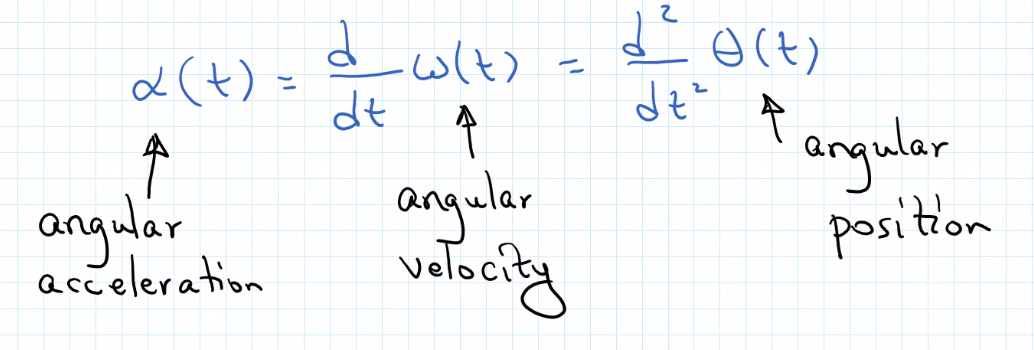 α(t) = d/dt ω(t) = d²/dt² θ(t)
angular
acceleration
angular
velocity
angular
position